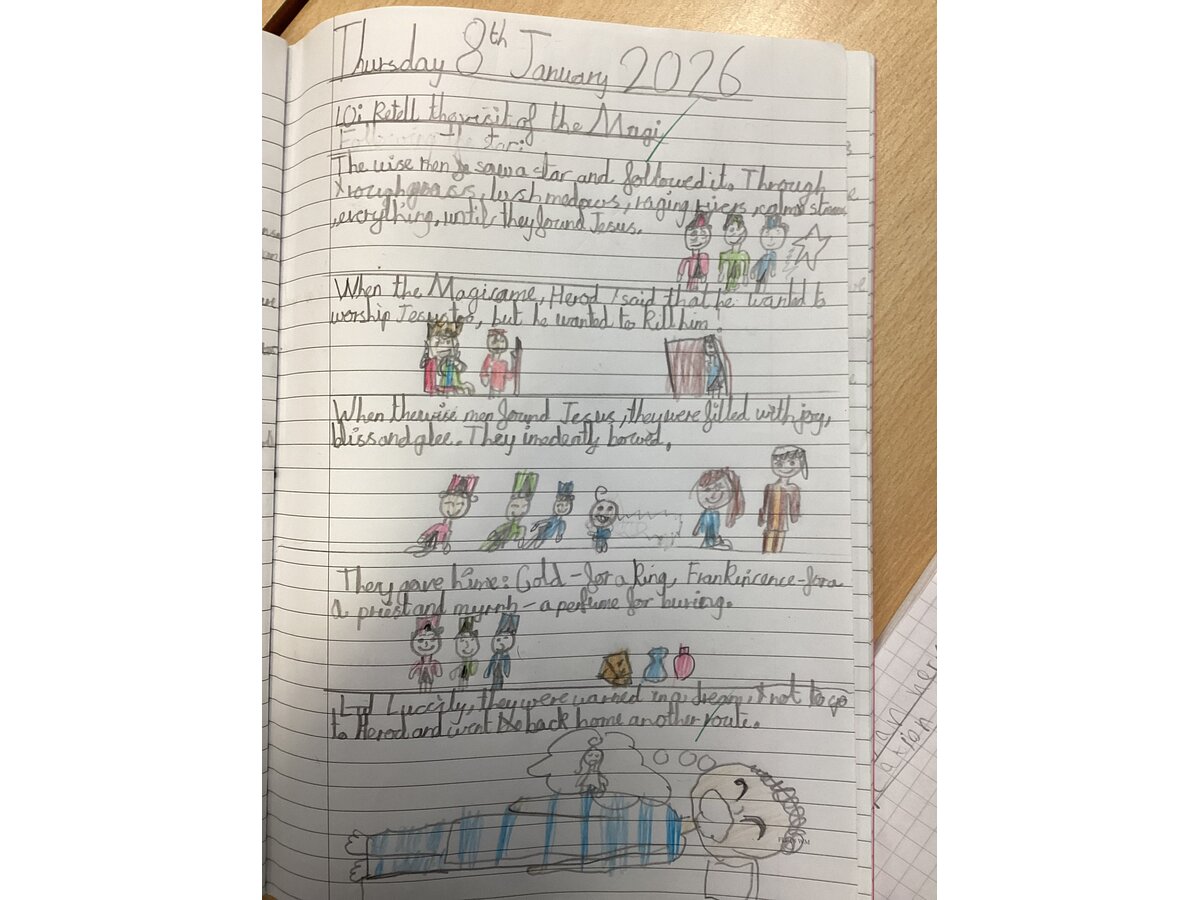 Thursday 8th January 2026
LOi Retell the visit of the Magi
Following the star:
The wise men saw a star and followed it. Through
rough grass, lush medows, raging rivers, calm streams
, everything, until they found Jesus.
When the Magi came, Herod said that he wanted to
worship Jesus too, but he wanted to kill him!
When the wise men found Jesus, they were filled with joy,
bliss and glee. They imedently bowed.
They gave him: Gold - for a King, Frankincence - for a
a priest and myrrh - a perfume for buring.
Luccily, they were warned in a dream, not to go
to Herod and went back home another route.